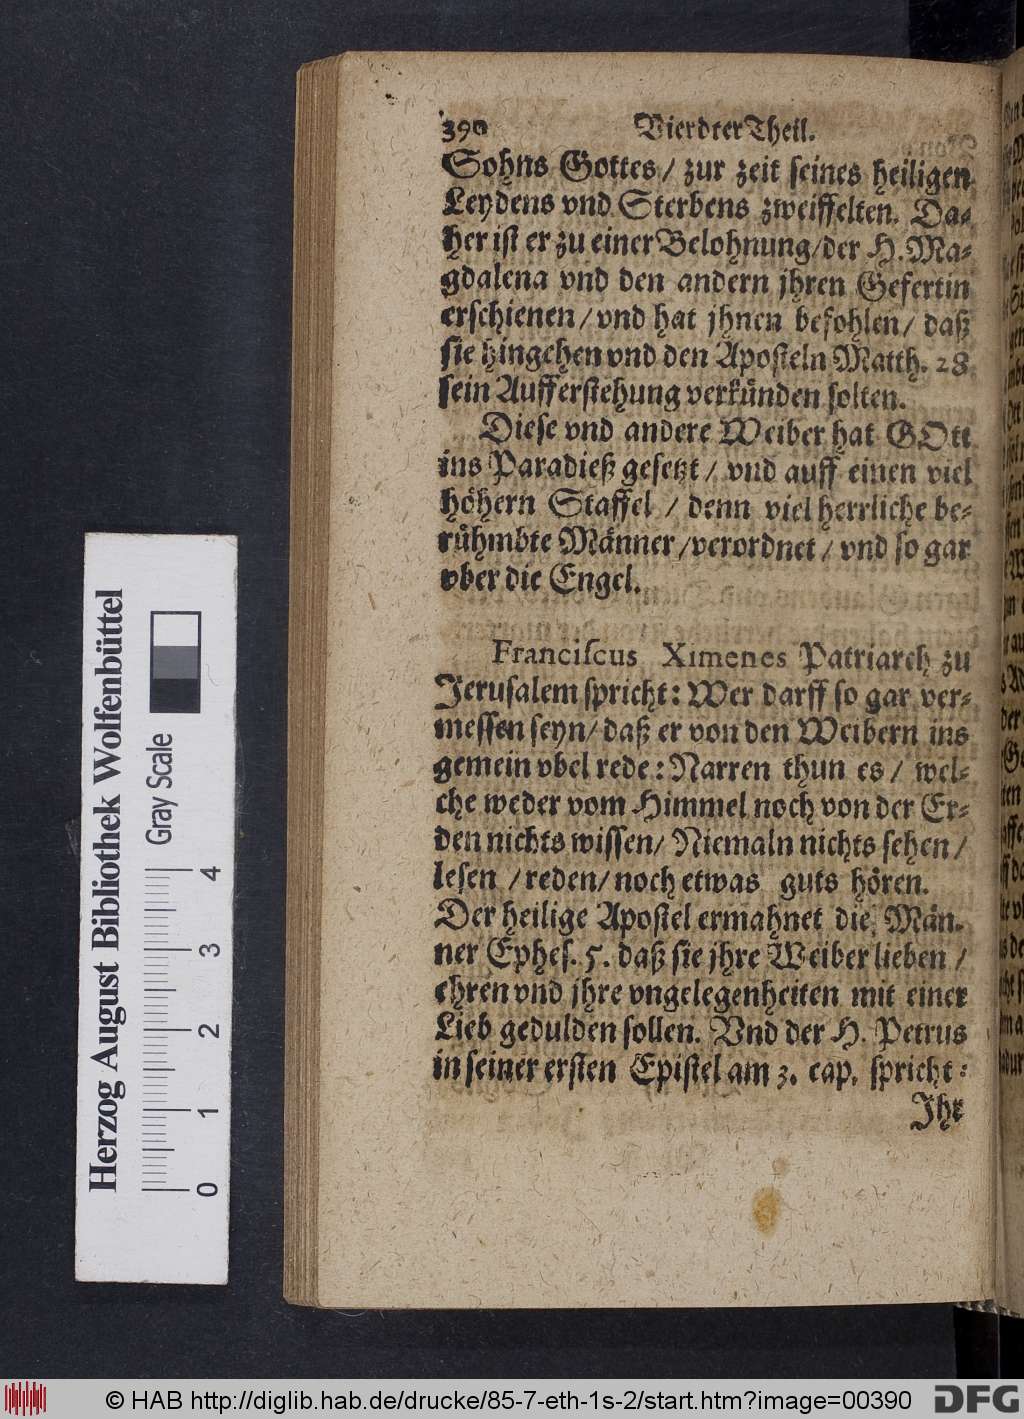 390 Vierdter Theil.
Sohns Gottes / zur zeit seines heiligen
Leydens vnd Sterbens zweiffelten. Da-
her ist er zu einer Belohnung / der H. Ma-
gdalena vnd den andern jhren Gefertin
erschienen / vnd hat jhnen befohlen / daß
sie hingehen vnd den Aposteln Matth. 28
sein Aufferstehung verkünden solten.
Diese vnd andere Weiber hat GOtt
ins Paradieß gesetzt / vnd auff einen viel
höhern Staffel / denn viel herrliche be-
rühmbte Männer / verordnet / vnd so gar
vber die Engel.
Franciscus Ximenes Patriarch zu
Jerusalem spricht: Wer darff so gar ver-
messen seyn / daß er von den Weibern ins
gemein vbel rede: Narren thun es / wel-
che weder vom Himmel noch von der Er-
den nichts wissen / Niemaln nichts sehen /
lesen / reden / noch etwas guts hören.
Der heilige Apostel ermahnet die Män-
ner Ephes. 5. daß sie jhre Weiber lieben /
ehren vnd jhre vngelegenheiten mit einer
Lieb gedulden sollen. Vnd der H. Petrus
in seiner ersten Epistel am 3. cap. spricht:
Jhr
Herzog August Bibliothek Wolfenbüttel
Gray Scale
0 1 2 3 4
© HAB http://diglib.hab.de/drucke/85-7-eth-1s-2/start.htm?image=00390
DFG